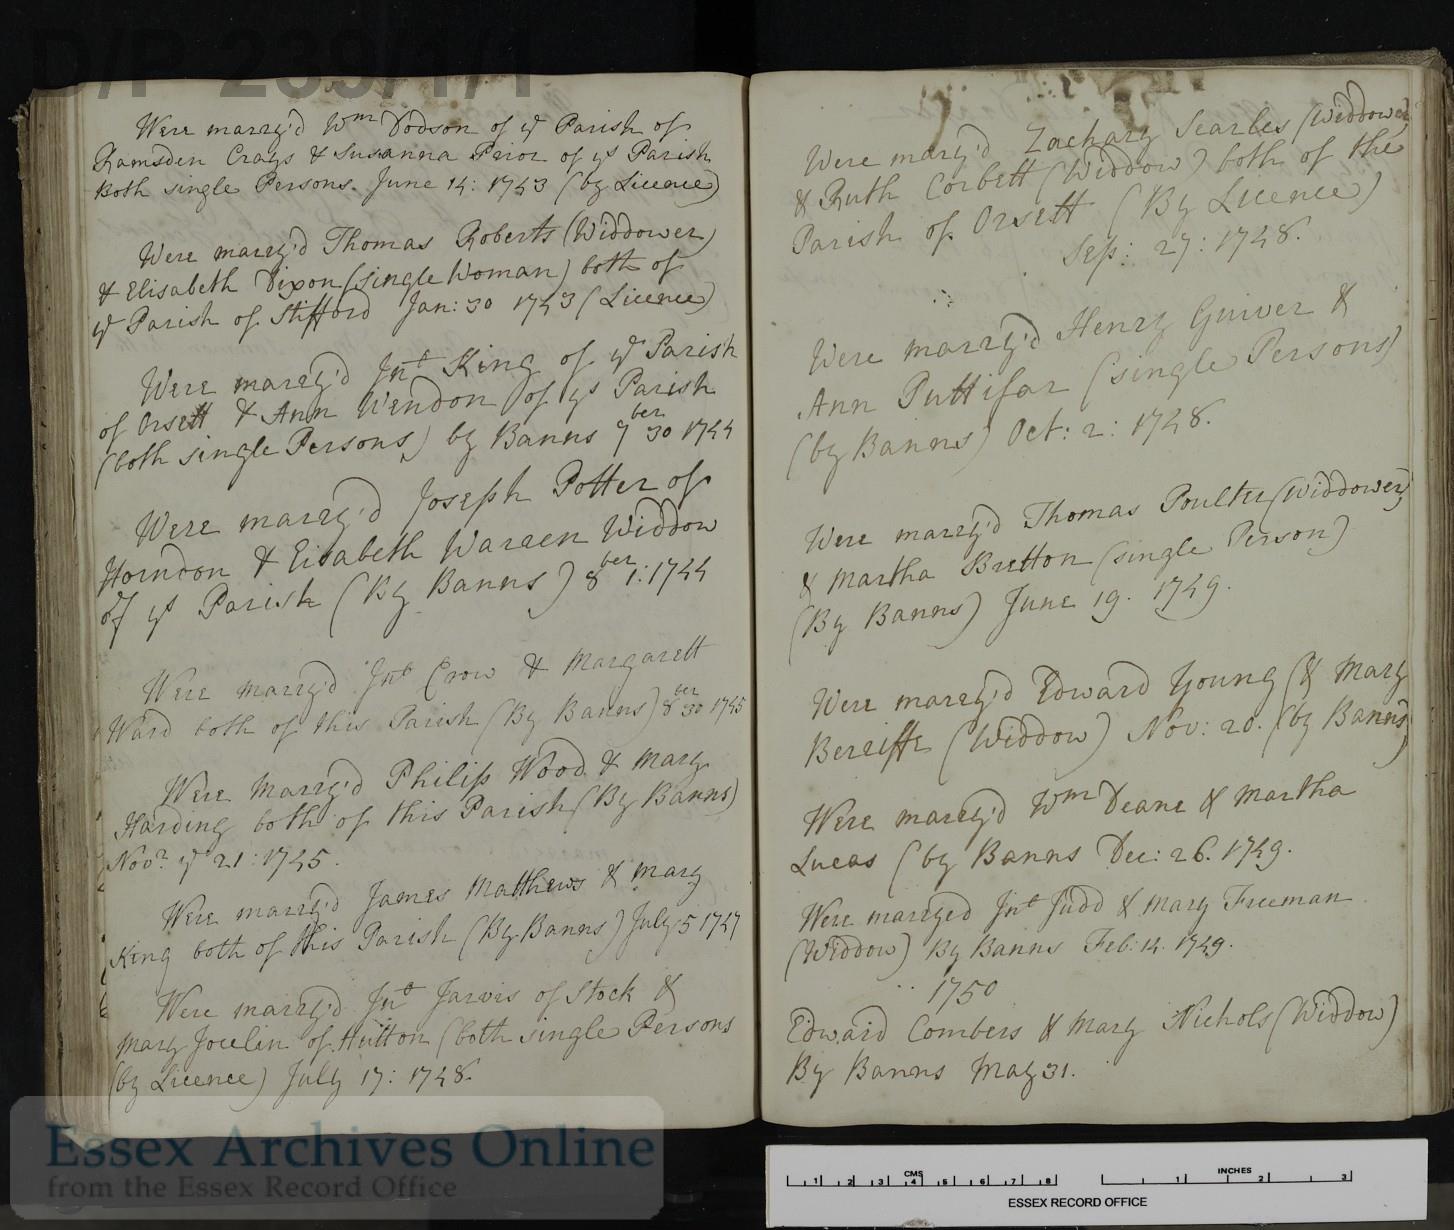 D/P 239/1/1
Were marry'd Wm Dodson of ye Parish of
Ramsden Crays & Susanna Prior of ys Parish
both single Persons. June 14: 1743 (by Licence)
Were marry'd Thomas Roberts (Widdower)
& Elisabeth Dixon (single Woman) both of
ye Parish of Stifford Jan: 30 1743 (Licence)
Were marry'd Jno King of ye Parish
of Orsett & Ann Wendon of ys Parish
(both single Persons) by Banns 7ber 30 1744
Were marry'd Joseph Potter of
Horndon & Elsabeth Warren Widdow
of ys Parish (By Banns) 8ber 1: 1744
Were marry'd Jno Crow & Margarett
Ward both of this Parish (By Banns) 8ber 30 1745
Were Marry'd Philip Wood & Mary
Harding both of this Parish (By Banns)
Novr ye 21: 1745.
Were marry'd James Matthews & Mary
King both of this Parish (By Banns) July 5 1747
Were marry'd Jno Jarvis of Stock &
Mary Jocelin of Hutton (both single Persons
(by Licence) July 17: 1748.
Were marry'd Zachary Searles (Widdower)
& Ruth Corbett (Widdow) both of the
Parish of Orsett (By Licence)
Sep: 27: 1748.
Were marry'd Henry Guiver &
Ann Puttifar (single Persons)
(by Banns) Oct: 2: 1748.
Were marry'd Thomas Poulter (Widdower)
& Martha Bretton (single Person)
(By Banns) June 19. 1749.
Were marry'd Edward Young (& Mary
Bereiffe (Widdow) Nov: 20. (by Banns)
Were marry'd Wm Deane & Martha
Lucas (by Banns Dec: 26. 1749.
Were marryed Jno Judd & Mary Freeman
(Widdow) By Banns Feb: 14. 1749.
1750
Edward Combers & Mary Nichols (Widdow)
By Banns May 31.
Essex Archives Online
from the Essex Record Office
CMS
1 2 3 4 5 6 7 8
INCHES
1 2 3
ESSEX RECORD OFFICE